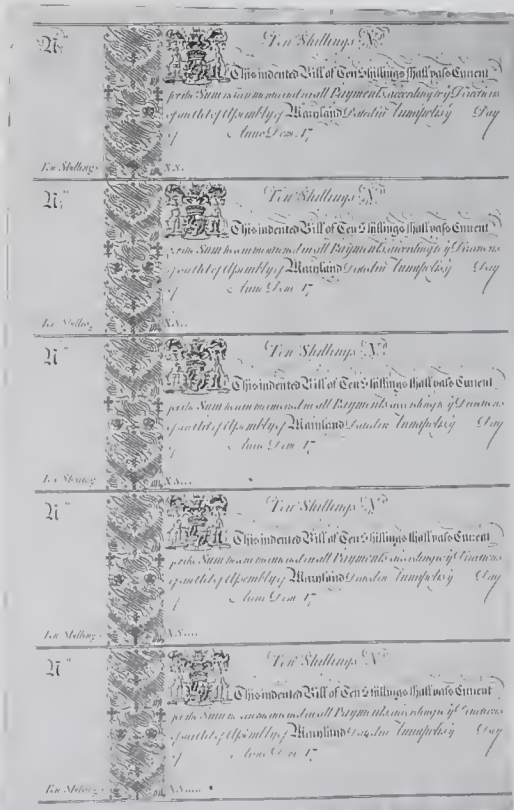 Ten Shillings No
No
This indented Bill of Ten Shillings shall pass Current
for the Sum herein mentioned in all Payments according to ye Directions
of an Act of Assembly of Maryland Dated in Annapolis ye Day
of Anno Dom. 17
Ten Shillings X.S.
Ten Shillings No
No
This indented Bill of Ten Shillings shall pass Current
for the Sum herein mentioned in all Payments according to ye Directions
of an Act of Assembly of Maryland Dated in Annapolis ye Day
of Anno Dom 17
Ten Shillings X.S.
Ten Shillings No
No
This indented Bill of Ten Shillings shall pass Current
for the Sum herein mentioned in all Payments according to ye Directions
of an Act of Assembly of Maryland Dated in Annapolis ye Day
of Anno Dom 17
Ten Shillings X.S.
Ten Shillings No
No
This indented Bill of Ten Shillings shall pass Current
for the Sum herein mentioned in all Payments according to ye Directions
of an Act of Assembly of Maryland Dated in Annapolis ye Day
of Anno Dom 17
Ten Shillings X.S.
Ten Shillings No
No
This indented Bill of Ten Shillings shall pass Current
for the Sum herein mentioned in all Payments according to ye Directions
of an Act of Assembly of Maryland Dated in Annapolis ye Day
of Anno Dom 17
Ten Shillings X.S.